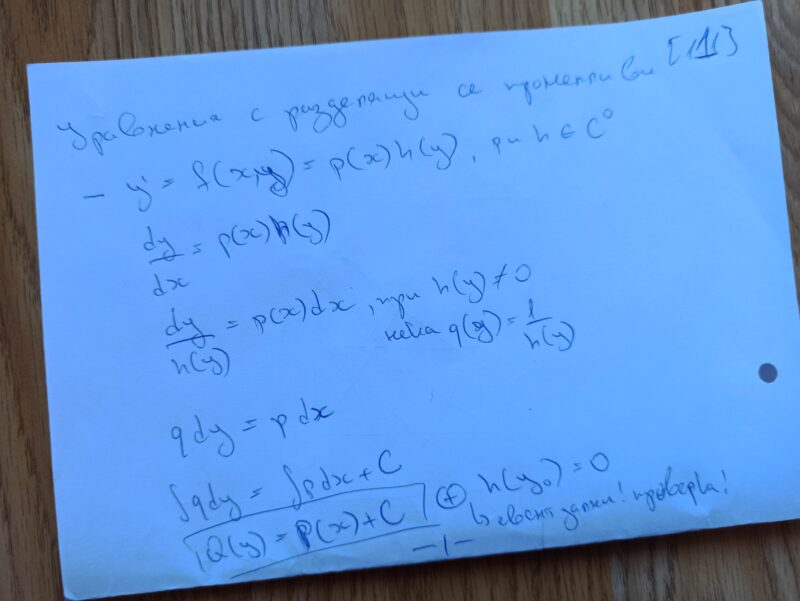 Уравнения с разделящи се променливи [11]
- y' = f(x,y) = p(x)h(y), p и h ∈ C⁰
dy/dx = p(x)h(y)
dy/h(y) = p(x)dx, при h(y) ≠ 0
нека q(y) = 1/h(y)
q dy = p dx
∫q dy = ∫p dx + C
Q(y) = P(x) + C ⊕ h(y₀) = 0
↳ евент. проверка!
-1-